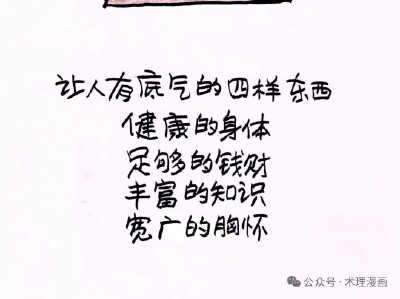 让人有底气的四样东西
健康的身体
足够的钱财
丰富的知识
宽广的胸怀
公众号·术理漫画